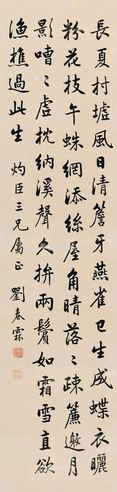 長夏村墟風日清簷牙燕雀已生成蝶衣曬
粉花枝午蛛網添絲屋角晴落〻疏簾邀月
影嘈〻虛枕納溪聲久拚兩鬢如霜雪直欲
漁樵過此生 灼臣三兄屬正 劉春霖